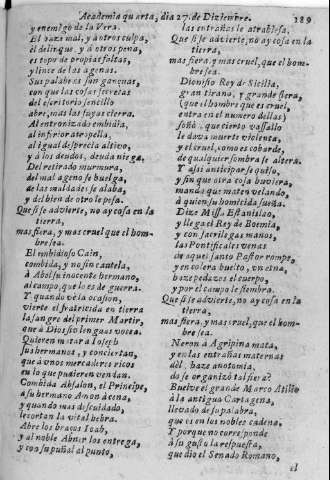 Academia quarta, dia 27. de Diziembre. 189
y enemigo de la Vera.
El haze mal, y à otros culpa,
èl delinque, y à otros pena,
es topo de propias faltas,
y lince de las agenas.
Sus palabras son ganzuas,
con que las cosas secretas
del escritorio sencillo
abre, mas las suyas cierra.
Al entronizado embidia,
al inferior atropella,
al igual desprecia altivo,
y à los deudos, deuda niega.
Del retirado murmura,
del mal ageno se huelga,
de las maldades se alaba,
y del bien de otro le pesa.
Que si se advierte, no ay cosa en la
tierra,
mas fiera, y mas cruel que el hom-
bre sea.
El embidioso Cain,
combida, y no sin cautela,
à Abel su inocente hermano,
al campo, que lo es de guerra.
Y quando vè la ocasion,
vierte el fratricida en tierra
la sangre del primer Martir,
que à Dios sin lengua vocea.
Quieren matar à Ioseph
sus hermanos, y conciertan,
que à unos mercaderes ricos
en lo que pudieren vendan.
Combida Absalon, el Principe,
à su hermano Amon à cena,
y quando mas descuidado,
le cortan la vital hebra.
Abre los braços Ioab,
y al noble Abner los entrega,
y con su puñal al punto,
las entrañas le atraviessa.
Que si se advierte, no ay cosa en la
tierra,
mas fiera, y mas cruel, que el hom-
bre sea.
Dionisio Rey de Sicilia,
gran tirano, y grande fiera,
(que el hombre que es cruel,
entra en el numero dellas)
soñò, que cierto vassallo
le dava muerte violenta,
y el cruel, como es cobarde,
de qualquier sombra se altera.
Y assi anticipar se quiso,
y sin que otra cosa huviera,
manda que maten velando,
à quien su homicida sueña.
Dize Missa Estanislao,
y llega el Rey de Boemia,
y con sacrilegas manos,
las Pontificales venas
de aquel santo Pastor rompe,
y en colera buelto, un etna,
haze pedazos el cuerpo,
y por el campo le siembra.
Que si se advierte, no ay cosa en la
tierra,
mas fiera, y mas cruel, que el hom-
bre sea.
Neron à Agripina mata,
y en las entrañas maternas
del, haze anotomia.
do se organizò tal fiera?
Buelve el grande Marco Atilio
à la antigua Cartagena,
llevado de su palabra,
que es en los nobles cadena,
Y porque no corresponde
à su gusto la respuesta,
que dio el Senado Romano,
el